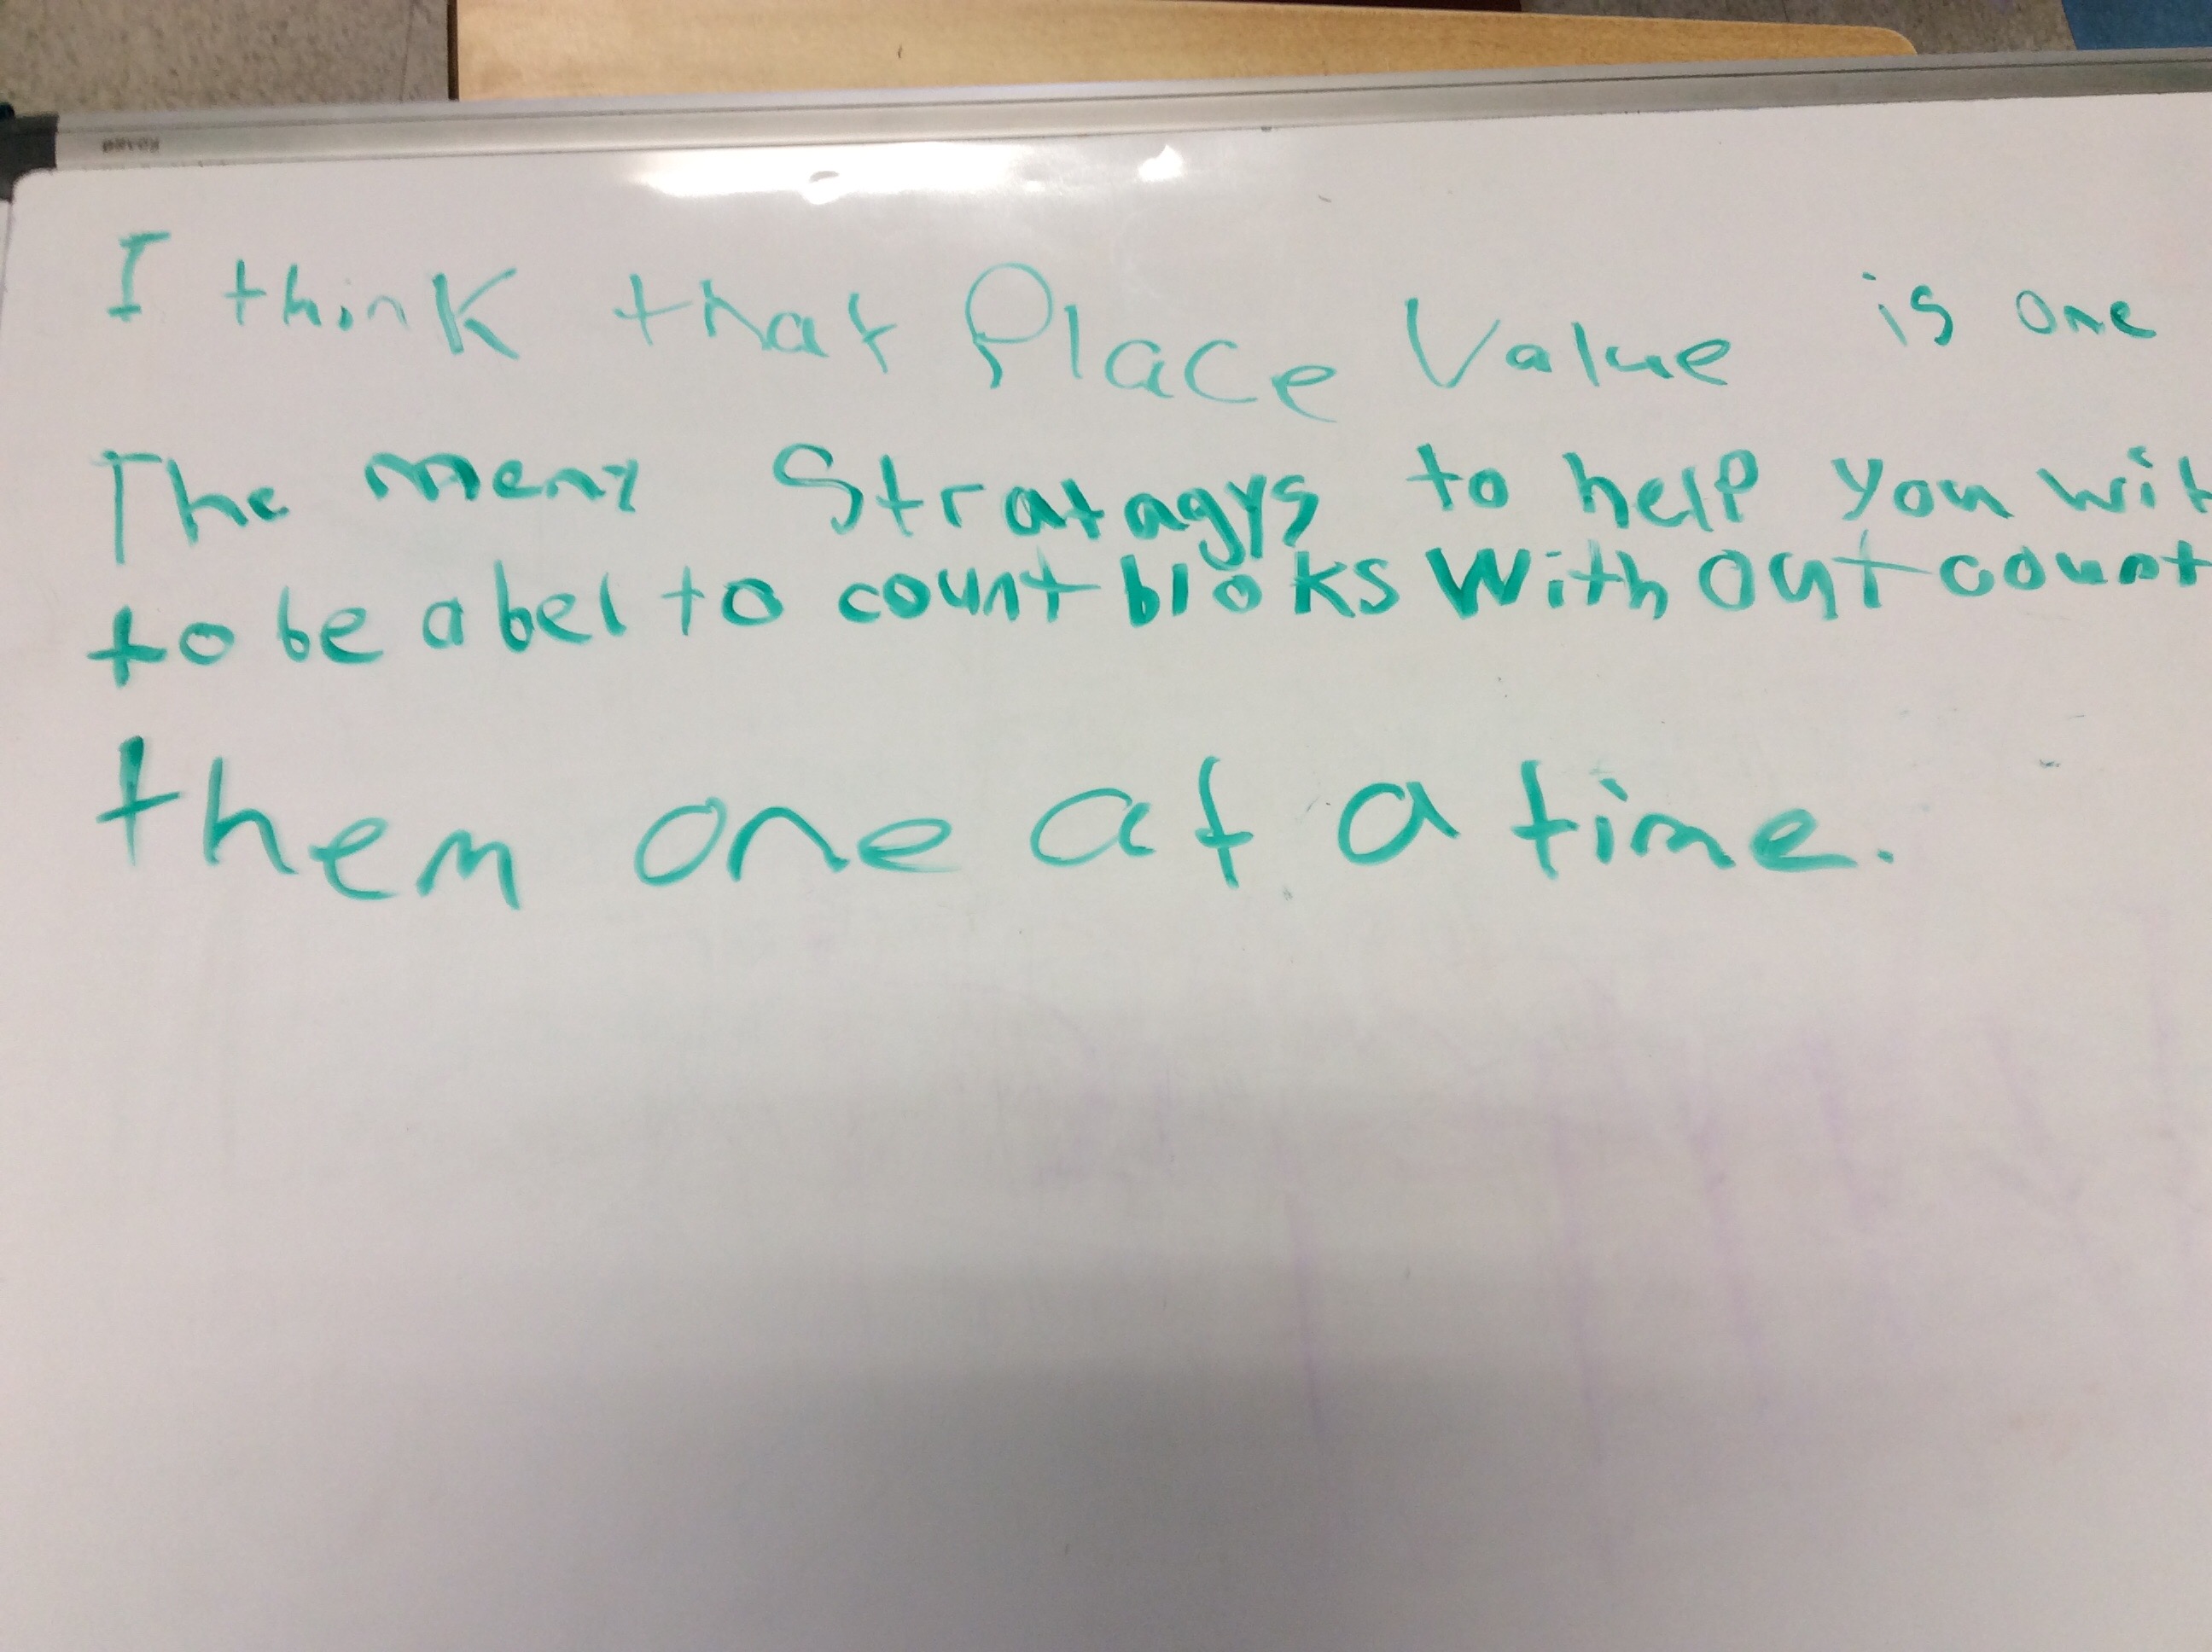 I think that Place Value is one
The meny Stratagys to help you wit
to be abel to count bloks With out count
them one at a time.